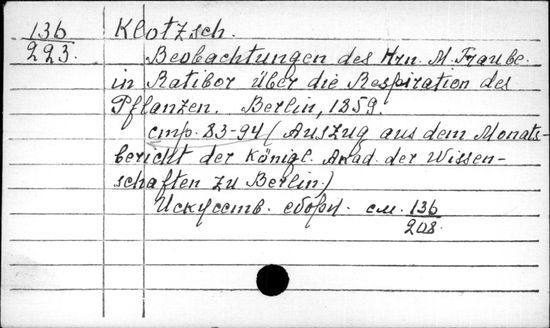 136
223.
Klotzsch.
Beobachtungen des Hrn. M. Traube.
in Ratibor über die Respiration des
Pflanzen. Berlin, 1859.
стр. 83-94 (Auszug aus dem Monats-
bericht der Königl. Akad. der Wissen-
schaften zu Berlin.)
Искусств. сборн. см. 136
208.